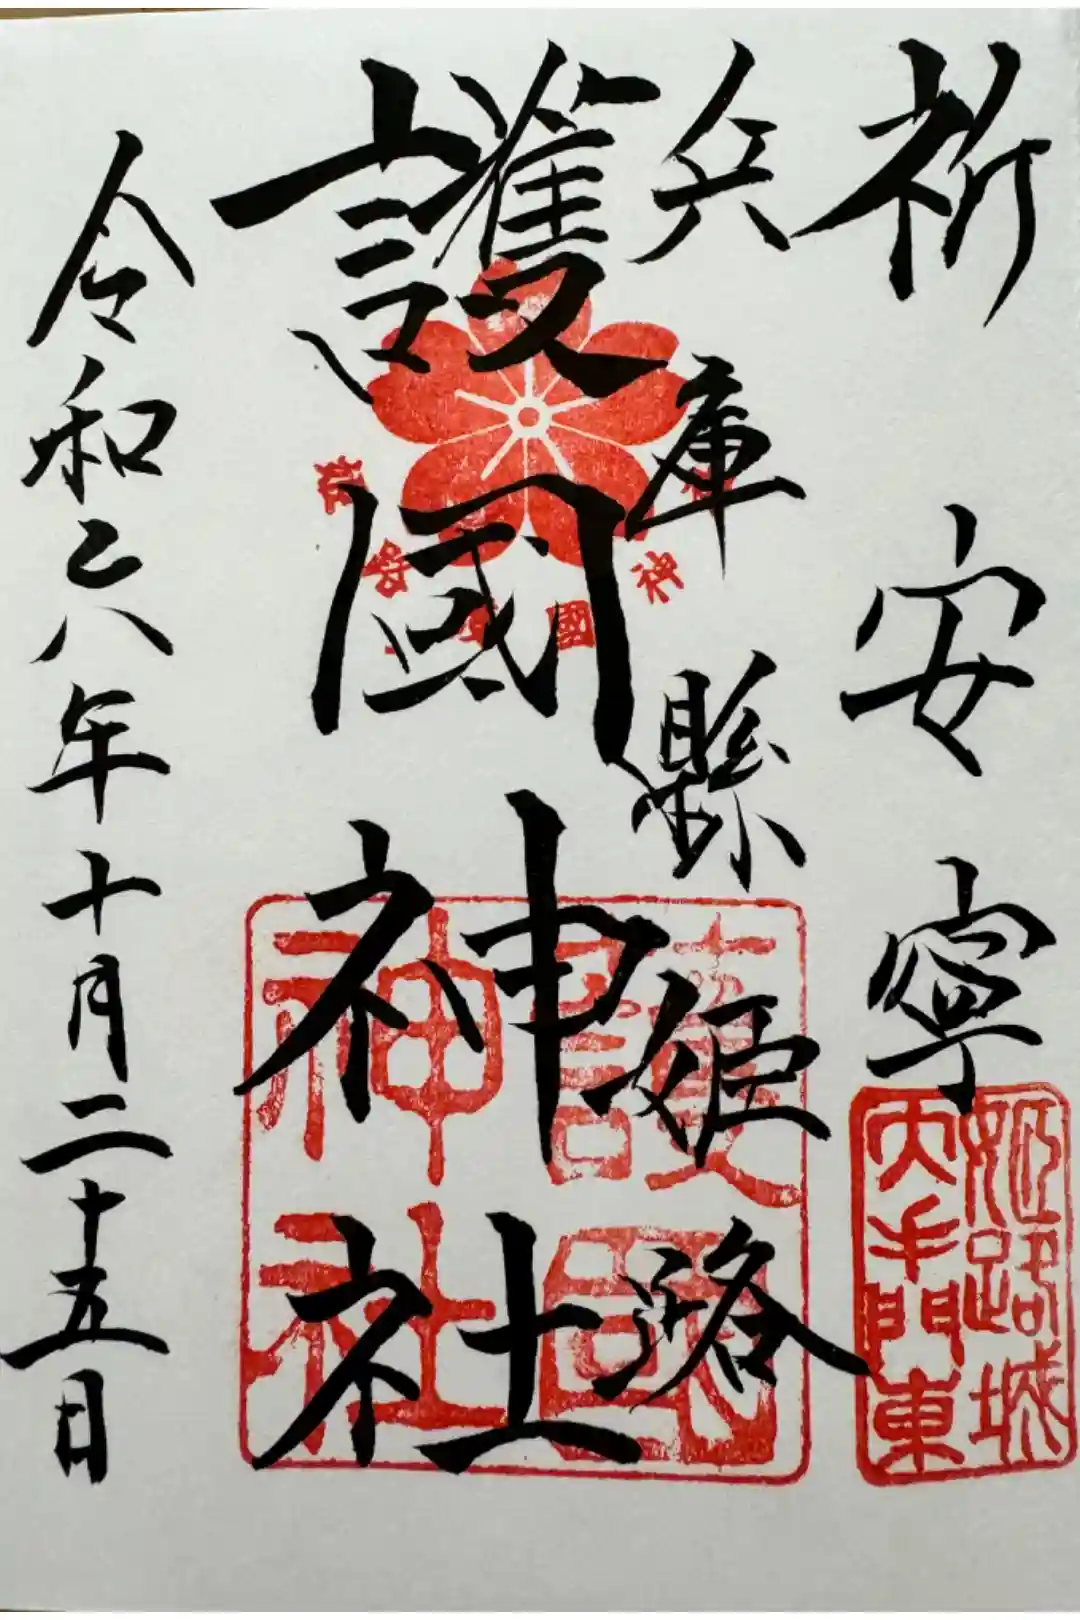 祈安寧
兵庫縣姫路
護國神社
令和六年十月二十五日
姫路城
大手門東
護國
神社